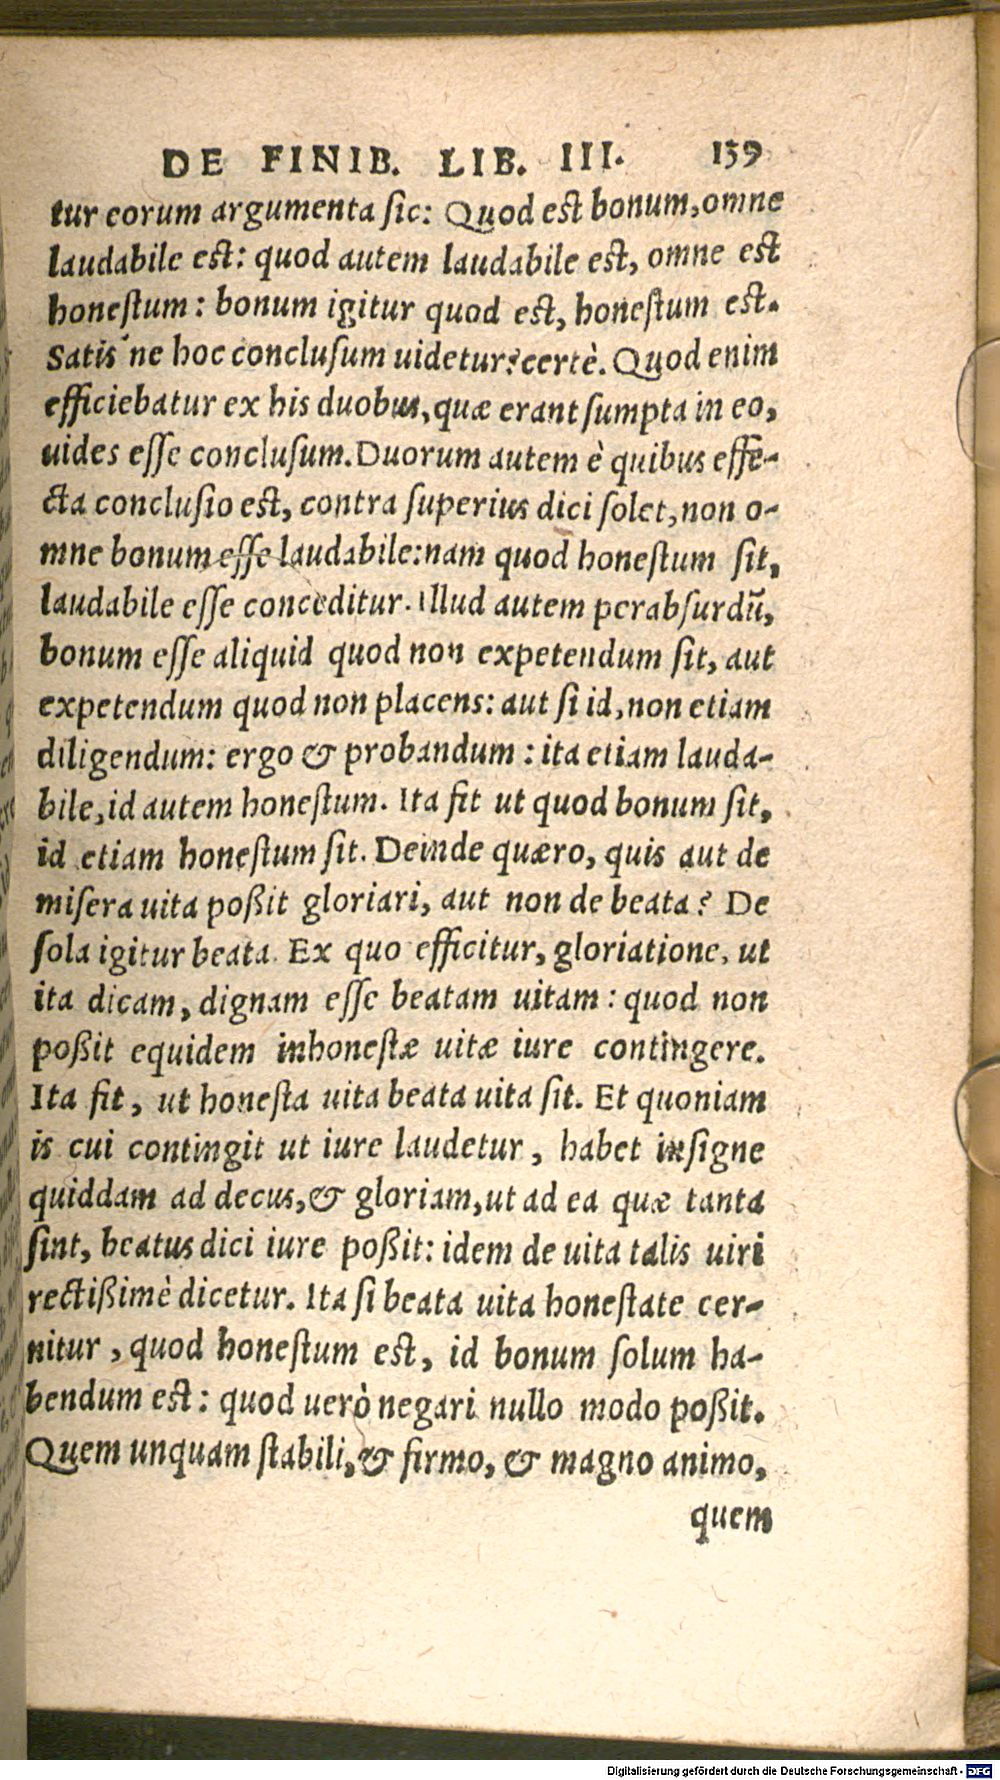 DE FINIB. LIB. III. 159
tur eorum argumenta ſic: Quod est bonum, omne
laudabile est: quod autem laudabile est, omne est
honeſtum: bonum igitur quod est, honeſtum est.
Satis'ne hoc concluſum uidetur? certè. Quod enim
efficiebatur ex his duobus, quæ erant ſumpta in eo,
uides eſſe concluſum. Duorum autem è quibus effe-
cta concluſio est, contra ſuperius dici ſolet, non o-
mne bonum eſſe laudabile: nam quod honeſtum ſit,
laudabile eſſe conceditur. Illud autem perabſurdū,
bonum eſſe aliquid quod non expetendum ſit, aut
expetendum quod non placens: aut ſi id, non etiam
diligendum: ergo & probandum: ita etiam lauda-
bile, id autem honeſtum. Ita fit ut quod bonum ſit,
id etiam honeſtum ſit. Deinde quæro, quis aut de
miſera uita poßit gloriari, aut non de beata? De
ſola igitur beata. Ex quo efficitur, gloriatione, ut
ita dicam, dignam eſſe beatam uitam: quod non
poßit equidem inhoneſtæ uitæ iure contingere.
Ita fit, ut honeſta uita beata uita ſit. Et quoniam
is cui contingit ut iure laudetur, habet inſigne
quiddam ad decus, & gloriam, ut ad ea quæ tanta
ſint, beatus dici iure poßit: idem de uita talis uiri
rectißimè dicetur. Ita ſi beata uita honeſtate cer-
nitur, quod honeſtum est, id bonum ſolum ha-
bendum est: quod uerò negari nullo modo poßit.
Quem unquam ſtabili, & firmo, & magno animo,
quem
Digitalisierung gefördert durch die Deutsche Forschungsgemeinschaft - DFG